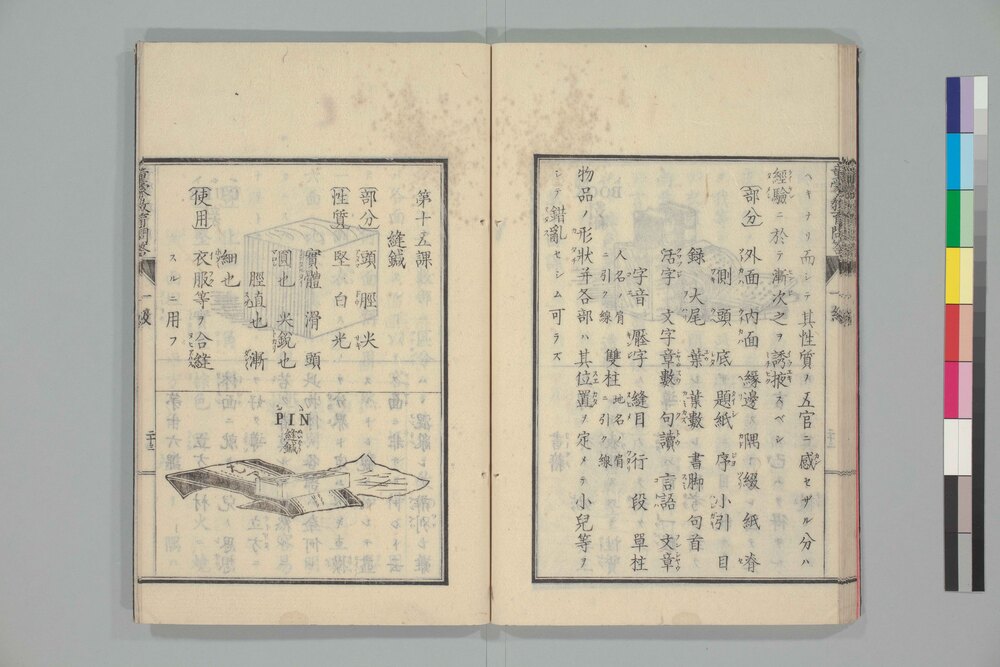 ヘキヲリ而シテ其性質ノ五官ニ感セザル分ハ
經驗ニ於テ漸次之ヲ誘掖スベシ
部分 外面 内面 緣邊 隅 綴 紙 脊
側 頭 底 題紙 序 小引 目
録 大尾 葉 葉數 書脚 句首
活字 文字 章數 句讀 言語 文章
字音 壓字 縫目 行 段 單柱
人名ノ肩ニ引ク線 雙柱 地名ノ肩ニ引ク線
物品ノ形狀并各部ハ其位置ヲ定メテ小兒等ヲ
シテ錯亂セシム可ラズ
第十五課
縫鍼
部分 頭 脛 尖
性質 堅 白 光
實體 滑 頭
圓也 尖銳也
脛直也 漸
細也
使用 衣服等ヲ合縫
スルニ用フ
PIN
縫鍼